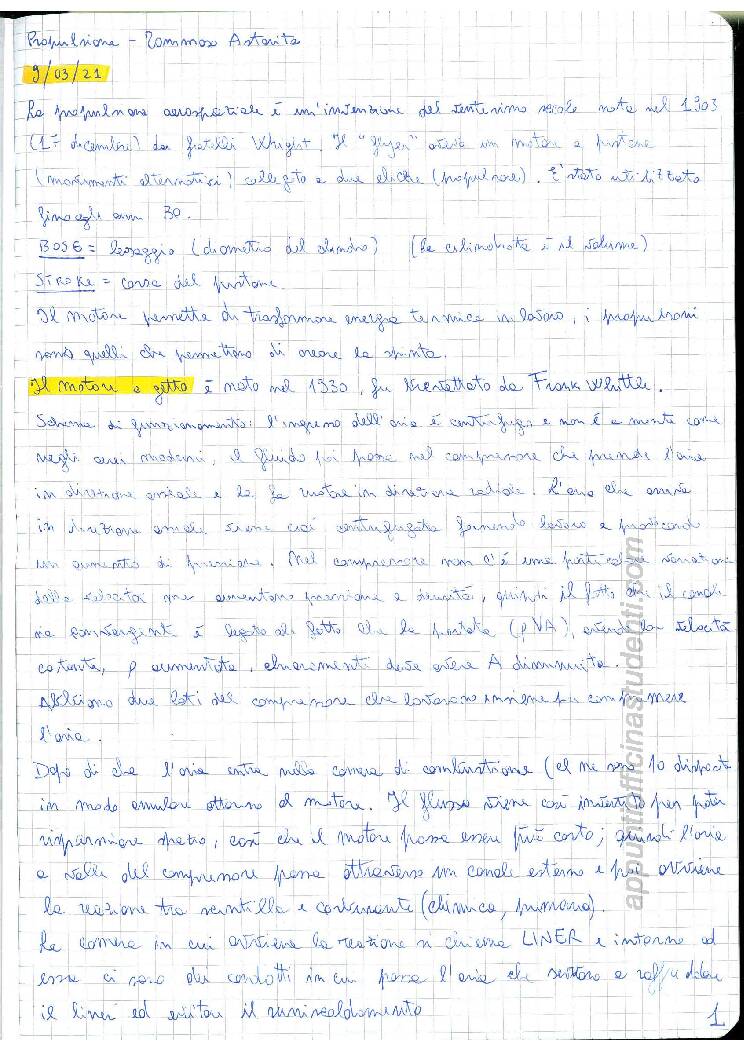 Propulsione - Tommaso Astarita
9/03/21
La propulsione aerospaziale è un'invenzione del ventesimo secolo nata nel 1903
(17 dicembre) dai fratelli Wright. Il "flyer" aveva un motore a pistone
(movimenti alternativi) collegato a due eliche (propulsore). E' stato utilizzato
fino agli anni 30.
BOSE = alesaggio (diametro del cilindro) (la cilindrata è il volume)
STROKE = corsa del pistone.
Il motore permette di trasformare energia termica in lavoro, i propulsori
sono quelli che permettono di creare la spinta.
Il motore a getto è nato nel 1930, fu brevettato da Frank Whittle.
Schema di funzionamento: l'ingresso dell'aria è centrifugo e non è a monte come
negli aerei moderni, il fluido poi passa nel compressore che prende l'aria
in direzione assiale e la fa ruotare in direzione radiale. L'aria che arriva
in direzione assiale viene così centrifugata fornendo lavoro e producendo
un aumento di pressione. Nel compressore non c'è una particolare variazione
della velocità ma aumentano pressione e densità, quindi il fatto che il canale
sia convergente è legato al fatto che la portata (ρVA), avendo la velocità
costante, ρ aumentata, chiaramente deve avere A diminuita.
Abbiamo due lati del compressore che lavorano insieme per comprimere
l'aria.
Dopo di che l'aria entra nella camera di combustione (ce ne sono 10 disposte
in modo anulare attorno al motore. Il flusso viene così invertito per poter
risparmiare spazio, così che il motore possa essere più corto; quindi l'aria
a valle del compressore passa attraverso un canale esterno e poi avviene
la reazione tra scintilla e carburante (chimica, primaria).
La camera in cui avviene la reazione si chiama LINER e intorno ad
essa ci sono dei condotti in cui passa l'aria che servono a raffreddare
il liner ed evitare il surriscaldamento
1
appuntiofficinastudenti.com